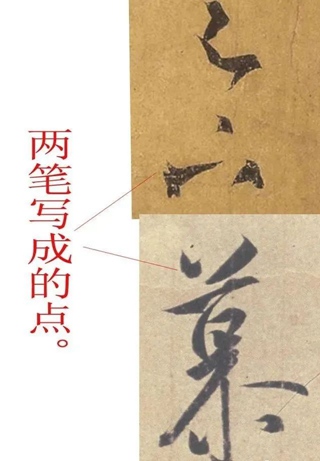 两笔写成的点。
慕